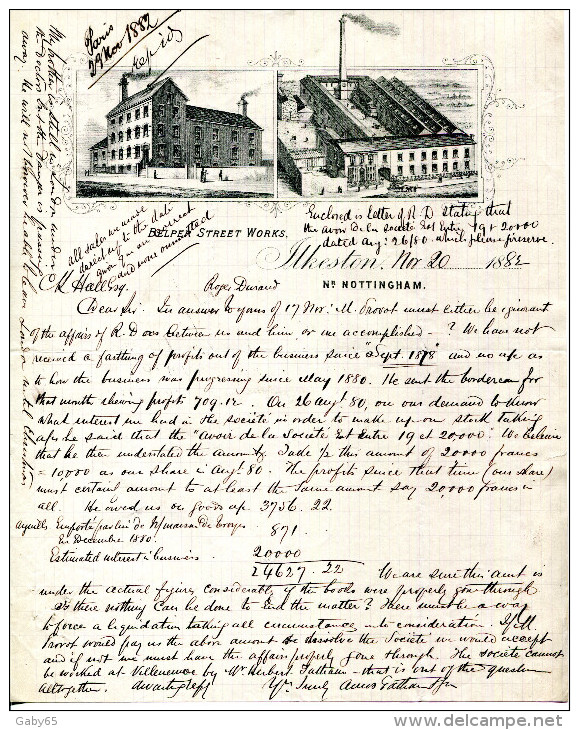 Paris
29 Nov 1882
My brother is still in London under
the Doctor but the danger is passing
away. He will not however be able to leave London until Christmas
all sales were made
dated up to the date
given on interest
and were omitted
Enclosed is letter of R D stating that
the avoir de la société Est Entre 19 et 20000
dated Aug: 26/80. which please preserve.
BELPER STREET WORKS.
Ilkeston, Nov 20 1882
NR NOTTINGHAM.
Hall Esq. Roger Durand
Dear Sir. In answer to yours of 17 Nov: M. Provot must either be ignorant
of the affairs of R. D as between us and him or an accomplished - ? We have not
received a farthing of profits out of the business since "Sept. 1878" and no a/c as
to how the business was progressing since May 1880. He sent the bordereau for
that month shewing profit 709.12. On 26 Augt 80, on our demand to know
what interest we had in the société in order to make up our stock taking
a/cs he said that the "Avoir de la Société Est Entre 19 et 20000". We believe
that he then understated the amount. 1/2 this amount of 20000 francs
= 10000 as our share in Augt 80. The profits since that time (our share)
must certainly amount to at least the same amount say 20000 francs in
all. He owed us on goods a/c 3756.22.
aiguilles Emporté par lui de la maison de Troyes 871.
En Decembre 1880.
Estimated interest in business. 20000
24627.22 We are sure this amt is
under the actual figure considerably if the books were properly gone through
Is there nothing can be done to End the matter? There must be a way
to force a liquidation taking all circumstances into consideration. If M.
Provot would pay us the above amount & dissolve the Société we would accept
and if not we must have the affairs properly gone through. The Société cannot
be worked at Villenauxe by Mr. Herbert Tatham - that is out of the question
altogether. Awaiting reply Yrs Truly Amos Tatham
Gaby65
www.delcampe.net